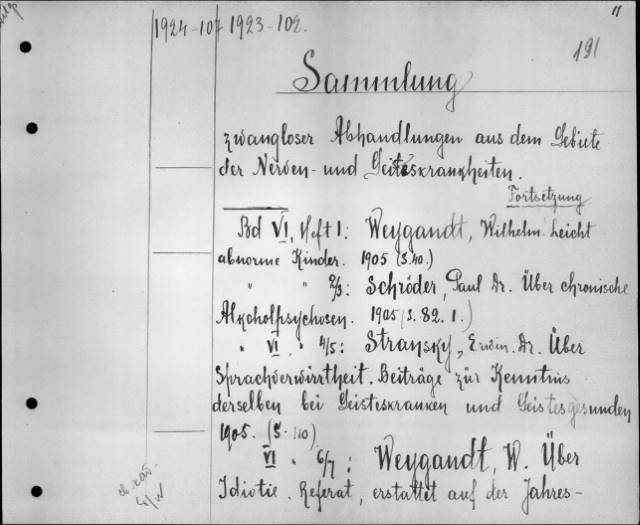 11
1924-107 1923-102.
191
Sammlung
zwangloser Abhandlungen aus dem Gebiete
der Nerven- und Geisteskrankheiten.
Fortsetzung
Bd VI, Heft 1: Weygandt, Wilhelm. Leicht
abnorme Kinder. 1905 (S. 40.)
" " 2/3: Schröder, Paul Dr. Über chronische
Alkoholpsychosen. 1905 (S. 82. 1.)
" VI " 4/5: Stransky, Erwin. Dr. Über
Sprachverwirrtheit. Beiträge zur Kenntnis
derselben bei Geisteskranken und Geistesgesunden
1905. (S. 110)
VI " 6/7: Weygandt, W. Über
Idiotie. Referat, erstattet auf der Jahres-